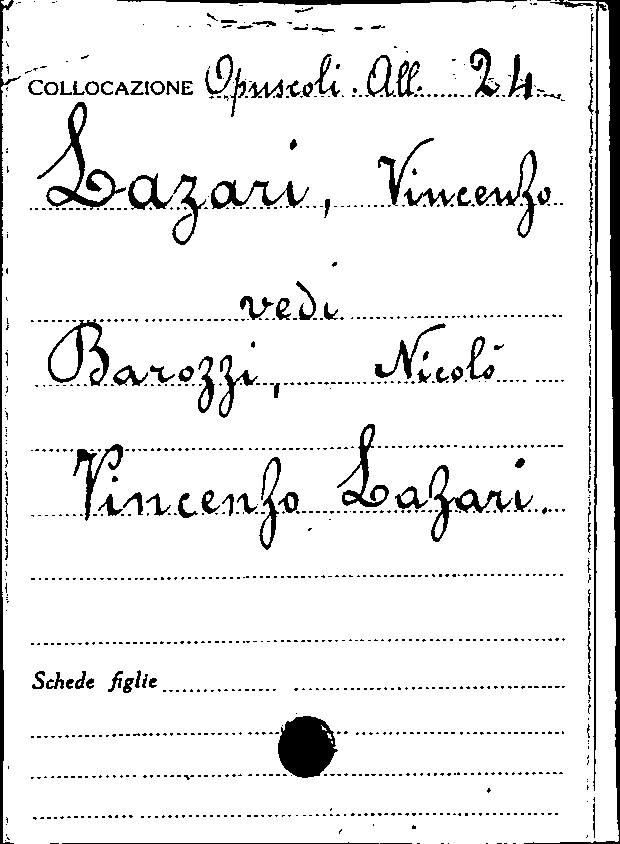 COLLOCAZIONE Opuscoli. All. 24
Lazari, Vincenzo
vedi
Barozzi, Nicolò
Vincenzo Lazari.
Schede figlie